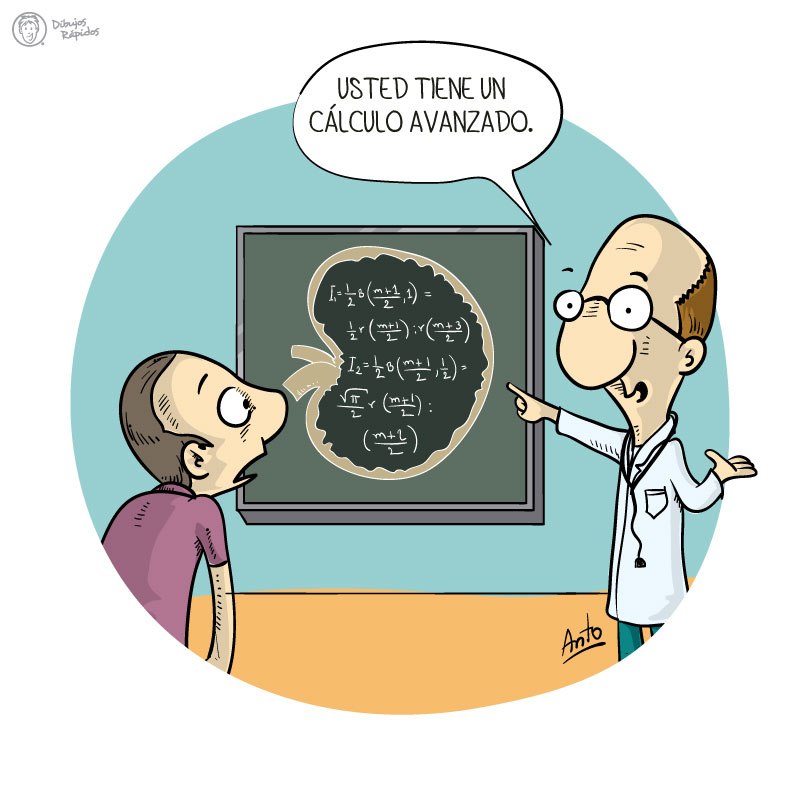 Dibujos
Rápidos
USTED TIENE UN
CÁLCULO AVANZADO.
I₁=½B(m+1/2,1)=
½r(m+1/2):r(m+3/2)
I₂=½B(m+1/2,½)=
√π/2 r(m+1/2):
(m+2/2)
Anto